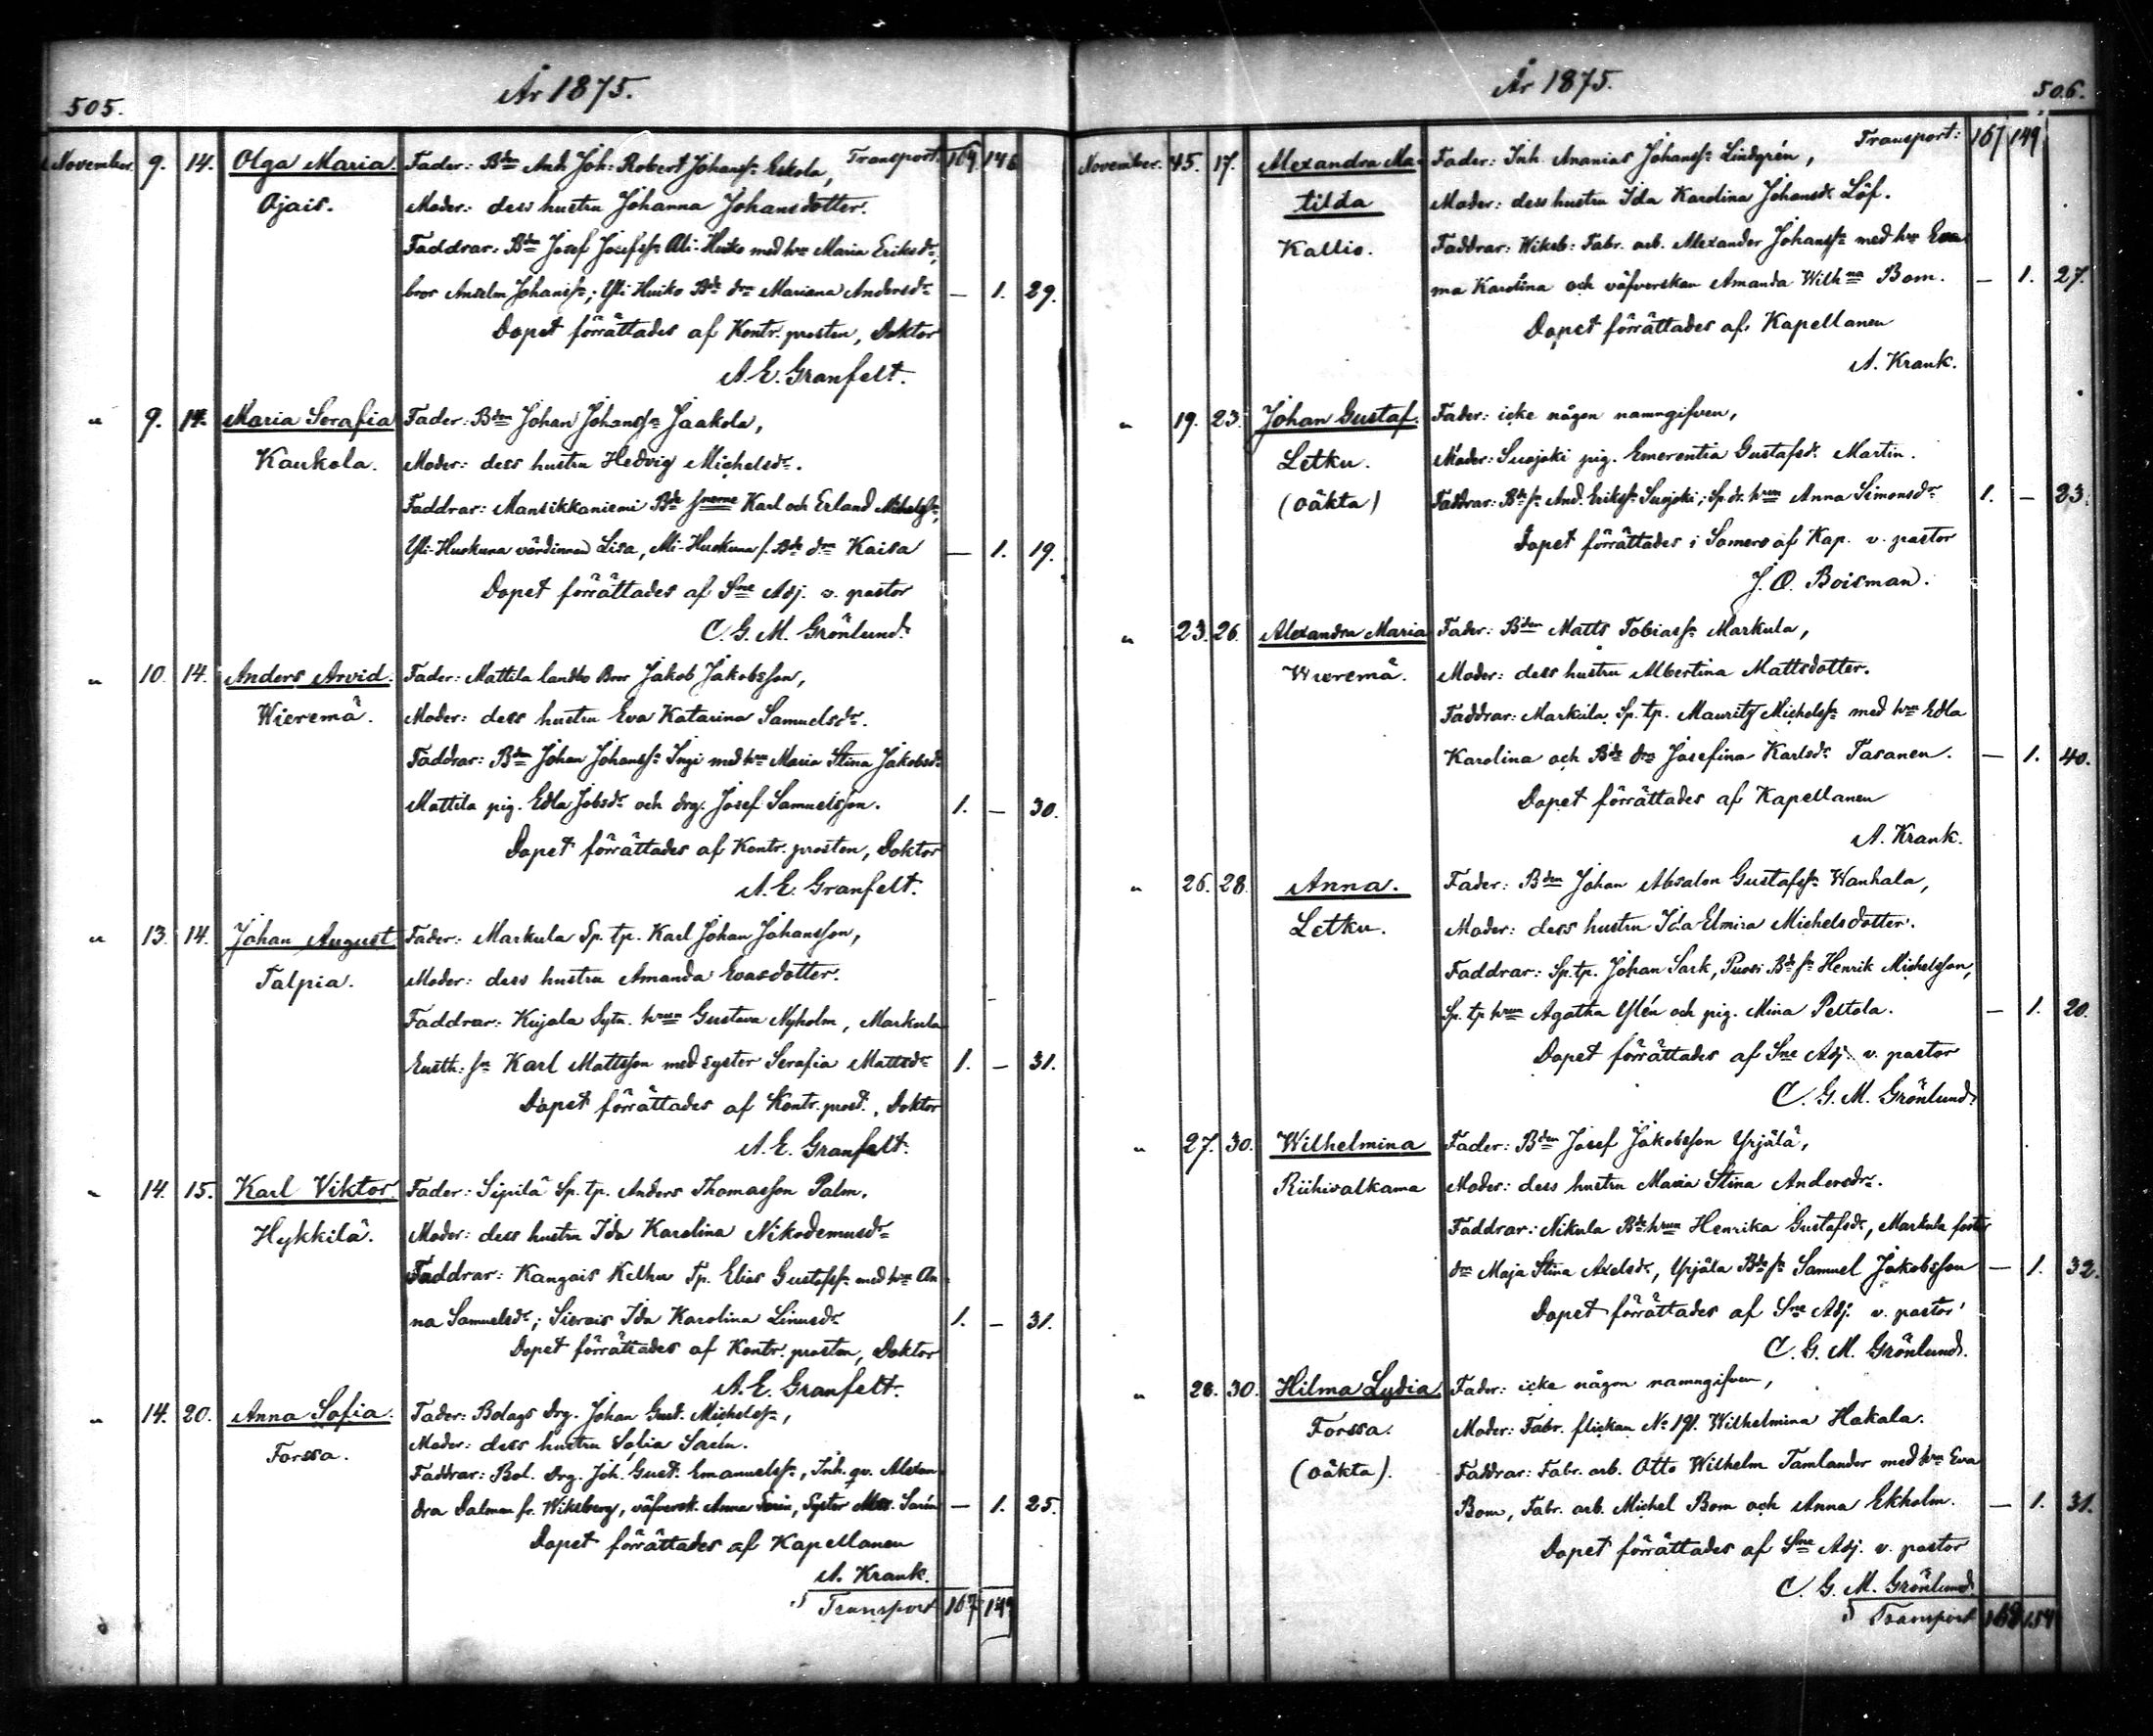 505.
År 1875.
November 9. 14. Olga Maria. Fader: Bden And. Joh: Robert Johans sn Eskola, Transport: 164 146
Ojais. Moder: dess hustru Johanna Johansdotter.
Faddrar: Bdn Josef Josefss: Ali-Heiko med hru Maria Eriksdr,
bror Anselm Johanss:; Yli Heiko Bde dr Mariana Andersdr — 1. 29.
Dopet förrättades af Kontr. prosten, Doktor
A. E. Granfelt.
" 9. 14. Maria Serafia Fader: Bden Johan Johanss: Jaakola,
Kaukola. Moder: dess hustru Hedvig Michelsdr.
Faddrar: Mansikkaniemi Bde snerne Karl och Erland Michelss:,
Yli-Huskuna värdinnan Lisa, Ali-Huskuna f. Bde dr Kaisa — 1. 19.
Dopet förrättades af Sne Adj. v. pastor
C. G. M. Grönlund.
" 10. 14. Anders Arvid. Fader: Mattila landbo Bror Jakob Jakobsson,
Wieremä. Moder: dess hustru Eva Katarina Samuelsdr.
Faddrar: Bdn Johan Johanss: Ingi med hru Maria Stina Jakobsdr
Mattila pig. Edla Jobsdr och drg. Josef Samuelsson. 1. — 30.
Dopet förrättades af Kontr. prosten, Doktor
A. E. Granfelt.
" 13. 14. Johan August Fader: Markula Sp. tp. Karl Johan Johansson,
Talpia. Moder: dess hustru Amanda Evasdotter.
Faddrar: Kujala Sytn. hrun Gustava Nyholm, Markula
Eusth: sn Karl Mattsson med syster Serafia Mattsdr 1. — 31.
Dopet förrättades af Kontr. prost., Doktor
A. E. Granfelt.
" 14. 15. Karl Viktor. Fader: Sipilä Sp. tp. Anders Thomasson Palm.
Hykkilä. Moder: dess hustru Ida Karolina Nikodemusdr
Faddrar: Kangais Kelhu Tp. Elias Gustafss: med hru An
na Samuelsdr; Sierais Ida Karolina Linusdr 1. — 31.
Dopet förrättades af Kontr. prosten, Doktor
A. E. Granfelt.
" 14. 20. Anna Sofia. Fader: Bolags drg. Johan Gust. Michelss:,
Forssa. Moder: dess hustru Sofia Sarén.
Faddrar: Bol. drg. Joh. Gust. Emanuelss:, Inh. qv. Alexan
dra Dalman fr. Wiksberg, väfversk. Anna Sarin, Syster Sarén — 1. 25.
Dopet förrättades af Kapellanen
A. Krank.
Transport 167 149
År 1875.
506.
Transport: 167 149
November. 15. 17. Alexandra Ma- Fader: Inh. Ananias Johanss: Lindgrén,
tilda Moder: dess hustru Ida Karolina Johansdr Löf.
Kallio. Faddrar: Wiksb: Fabr. arb. Alexander Johanss: med hru Em
ma Karolina och väfverskan Amanda Wilhna Bom. — 1. 27.
Dopet förrättades af Kapellanen
A. Krank.
" 19. 23. Johan Gustaf. Fader: icke någon namngifven,
Letku. Moder: Suojoki pig. Emerentia Gustafsdr Martin.
(oäkta) Faddrar: Bde sn And. Erikss: Suojoki; Sp. dr. hrun Anna Simonsdr 1. — 23.
Dopet förrättades i Somero af Kap. v. pastor
J. O. Boisman.
" 23. 26. Alexandra Maria Fader: Bden Matts Tobiass: Markula,
Wieremä. Moder: dess hustru Albertina Mattsdotter.
Faddrar: Markula Sp. tp. Mauritz Michelss: med hru Edla
Karolina och Bde dr Josefina Karlsdr Tasanen. — 1. 40.
Dopet förrättades af Kapellanen
A. Krank.
" 26. 28. Anna. Fader: Bden Johan Absalon Gustafss: Wanhala,
Letku. Moder: dess hustru Ida Elmira Michelsdotter.
Faddrar: Sp. tp. Johan Sark, Puosi Bde sn Henrik Michelsson,
Sp. tp hrun Agatha Ylén och pig. Mina Peltola. — 1. 20.
Dopet förrättades af Sne Adj. v. pastor
C. G. M. Grönlund.
" 27. 30. Wilhelmina Fader: Bden Josef Jakobsson Yrjälä,
Riihivalkama Moder: dess hustru Maria Stina Andersdr.
Faddrar: Nikula Bde hrun Henrika Gustafsdr, Markula foster
dr Maja Stina Axelsdr, Yrjälä Bde sn Samuel Jakobsson — 1. 32.
Dopet förrättades af Sne Adj. v. pastor
C. G. M. Grönlund.
" 28. 30. Hilma Lydia Fader: icke någon namngifven,
Forssa. Moder: Fabr. flickan No 191. Wilhelmina Hakala.
(oäkta). Faddrar: Fabr. arb. Otto Wilhelm Tamlander med hru Eva
Bom, Fabr. arb. Michel Bom och Anna Ekholm. — 1. 31.
Dopet förrättades af Sne Adj. v. pastor
C. G. M. Grönlund
Transport 168 154